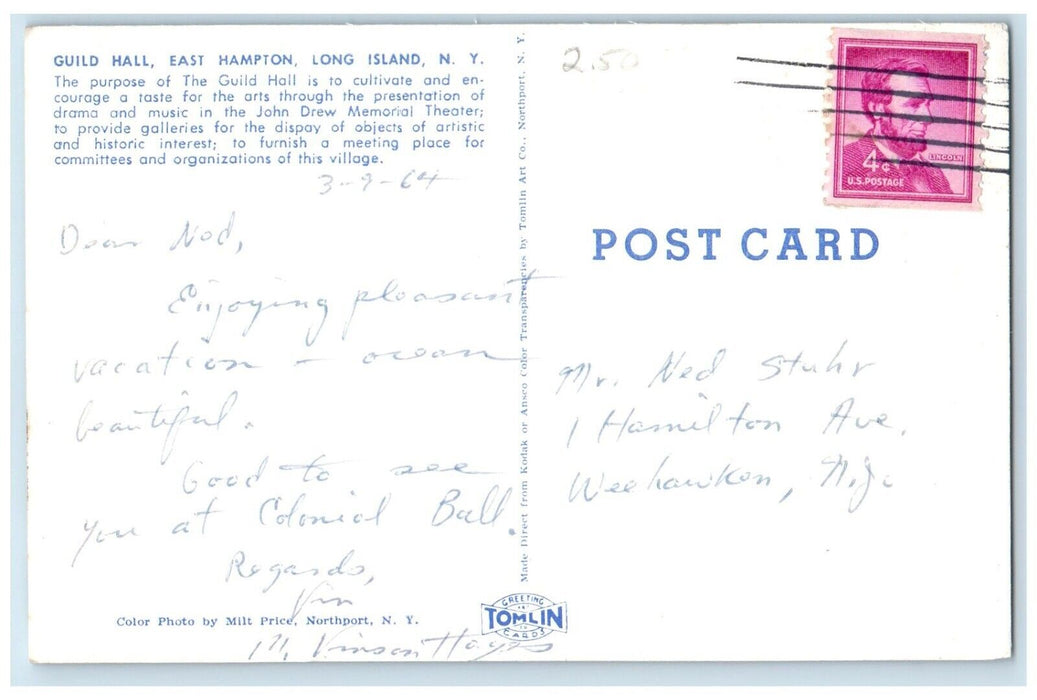 GUILD HALL, EAST HAMPTON, LONG ISLAND, N. Y.
The purpose of The Guild Hall is to cultivate and en-
courage a taste for the arts through the presentation of
drama and music in the John Drew Memorial Theater;
to provide galleries for the dispay of objects of artistic
and historic interest; to furnish a meeting place for
committees and organizations of this village.
3-9-64
Dear Ned,
Enjoying pleasant
vacation – ocean
beautiful.
Good to see
you at Colonial Ball.
Regards,
Vin
Color Photo by Milt Price, Northport, N. Y.
M. Vinson Hayes
Made Direct from Kodak or Ansco Color Transparencies by Tomlin Art Co., Northport, N. Y.
GREETING
TOMLIN
CARDS
2.50
4¢
LINCOLN
U.S. POSTAGE
POST CARD
Mr. Ned Stuhr
1 Hamilton Ave.
Weehawken, N.J.